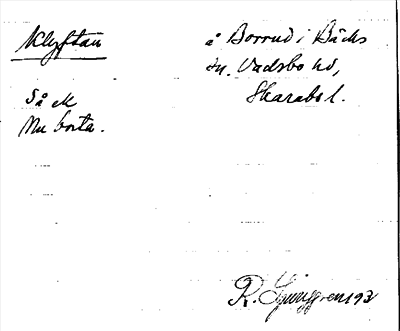 Klyftan
å Borrud i Bäcks
sn. Vadsbo hd,
Skarab l.
Så k
Nu borta.
R. Ljunggren 193